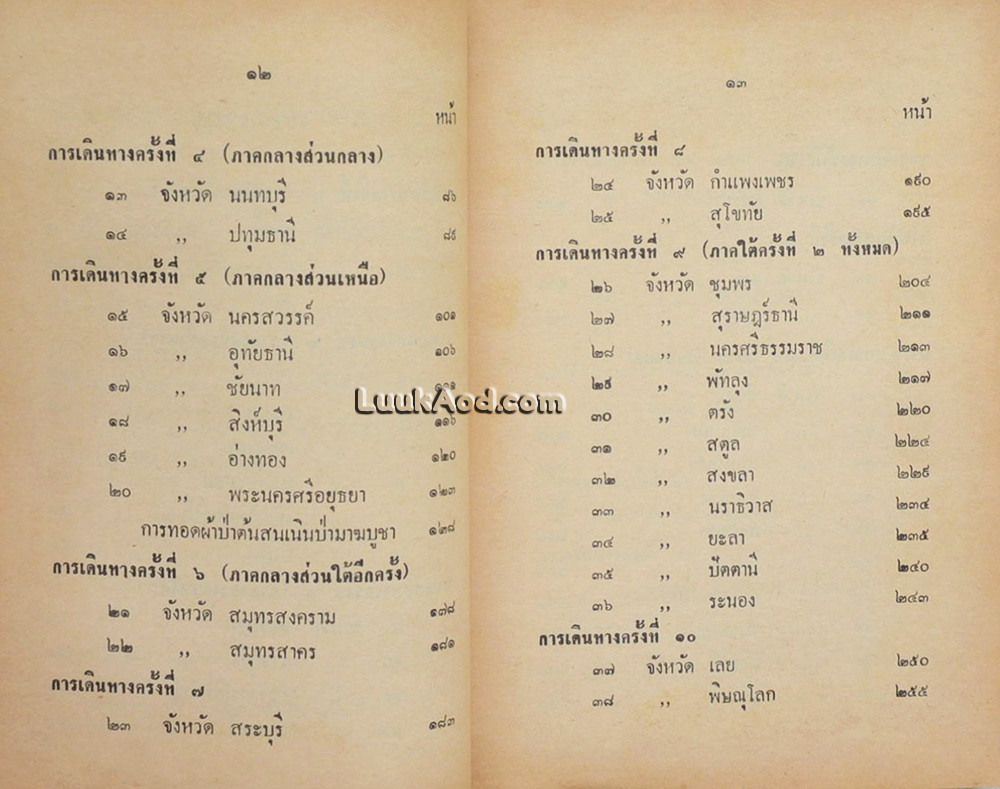 ๑๒
หน้า
การเดินทางครั้งที่ ๔ (ภาคกลางส่วนกลาง)
๑๓ จังหวัด นนทบุรี ๘๖
๑๔ ,, ปทุมธานี ๘๙
การเดินทางครั้งที่ ๕ (ภาคกลางส่วนเหนือ)
๑๕ จังหวัด นครสวรรค์ ๑๐๑
๑๖ ,, อุทัยธานี ๑๐๖
๑๗ ,, ชัยนาท
๑๘ ,, สิงห์บุรี ๑๑๖
๑๙ ,, อ่างทอง ๑๒๐
๒๐ ,, พระนครศรีอยุธยา ๑๒๓
การทอดผ้าป่าต้นสนเนินป่ามาฆบูชา ๑๒๘
การเดินทางครั้งที่ ๖ (ภาคกลางส่วนใต้อีกครั้ง)
๒๑ จังหวัด สมุทรสงคราม ๑๗๘
๒๒ ,, สมุทรสาคร ๑๘๑
การเดินทางครั้งที่ ๗
๒๓ จังหวัด สระบุรี ๑๘๓
๑๓
หน้า
การเดินทางครั้งที่ ๘
๒๔ จังหวัด กำแพงเพชร ๑๙๐
๒๕ ,, สุโขทัย ๑๙๕
การเดินทางครั้งที่ ๙ (ภาคใต้ครั้งที่ ๒ ทั้งหมด)
๒๖ จังหวัด ชุมพร ๒๐๔
๒๗ ,, สุราษฎร์ธานี ๒๑๑
๒๘ ,, นครศรีธรรมราช ๒๑๓
๒๙ ,, พัทลุง ๒๑๗
๓๐ ,, ตรัง ๒๒๐
๓๑ ,, สตูล ๒๒๔
๓๒ ,, สงขลา ๒๒๙
๓๓ ,, นราธิวาส ๒๓๔
๓๔ ,, ยะลา ๒๓๕
๓๕ ,, ปัตตานี ๒๔๐
๓๖ ,, ระนอง ๒๔๓
การเดินทางครั้งที่ ๑๐
๓๗ จังหวัด เลย ๒๕๐
๓๘ ,, พิษณุโลก ๒๕๕
LuukAod.com